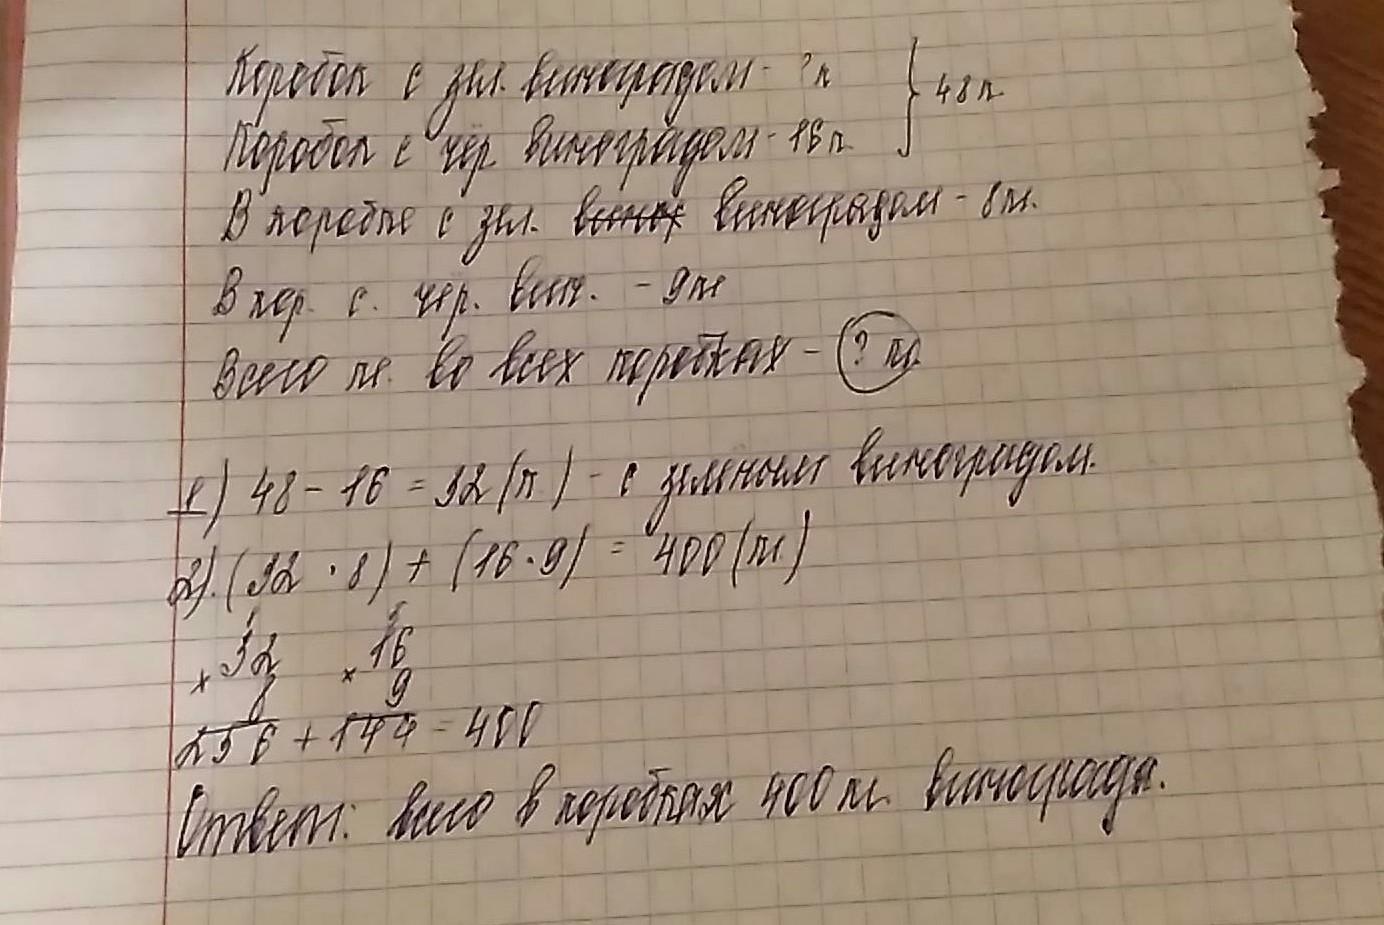 Коробок с зел. виноградом - ?к } 48к
Коробок с чёр. виноградом - 16к
В коробке с зел. виноградом - 8кг.
В кор. с. чёр. вин. - 9кг
Всего кг. во всех коробках - ? кг.
1) 48 - 16 = 32 (к) - с зелёным виноградом.
2). (32 · 8) + (16 · 9) = 400 (кг)
1 5
32 16
× 8 × 9
256 + 144 = 400
Ответ: всего в коробках 400 кг. винограда.